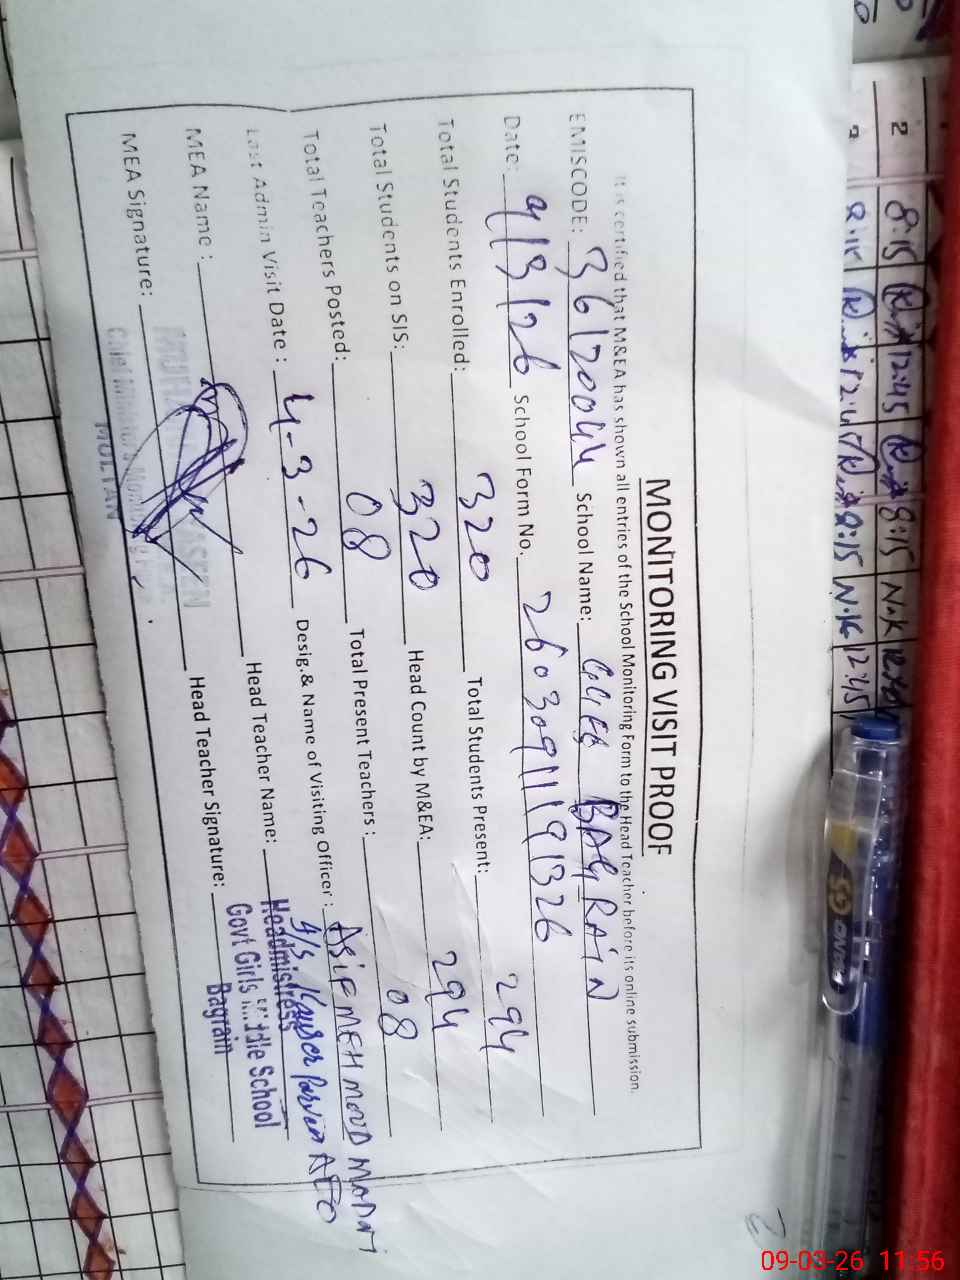 MONITORING VISIT PROOF
It is certified that M&EA has shown all entries of the School Monitoring Form to the Head Teacher before its online submission.
EMISCODE: 36120044 School Name: BAGRAIN
Date: 9/3/26 School Form No. 26030911191326
Total Students Enrolled: 320 Total Students Present: 294
Total Students on SIS: 320 Head Count by M&EA: 294
Total Teachers Posted: 08 Total Present Teachers : 08
Last Admin Visit Date : 4-3-26 Desig.& Name of Visiting Officer : ASIF MEHMOOD MADNI AEO
MEA Name : Head Teacher Name: Kauser Parveen
MEA Signature: Head Teacher Signature:
Headmistress
Govt Girls Middle School
Bagrain
MULTAN
2 8:15 12:45 8:15 N.K
8:15 N.K 12:45
ONDO
09-03-26 11:56